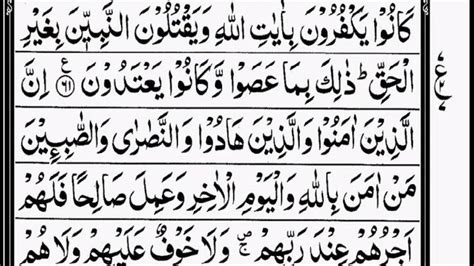 كَانُوْا يَكْفُرُوْنَ بِاٰيٰتِ اللّٰهِ وَيَقْتُلُوْنَ النَّبِيّٖنَ بِغَيْرِ
الْحَقِّ ؕ ذٰلِكَ بِمَا عَصَوْا وَّكَانُوْا يَعْتَدُوْنَ ﴿۶۱﴾ ع اِنَّ
الَّذِيْنَ اٰمَنُوْا وَالَّذِيْنَ هَادُوْا وَالنَّصٰرٰى وَالصّٰبِـِٕيْنَ
مَنْ اٰمَنَ بِاللّٰهِ وَالْيَوْمِ الْاٰخِرِ وَعَمِلَ صَالِحًا فَلَهُمْ
اَجْرُهُمْ عِنْدَ رَبِّهِمْ ۚ وَلَا خَوْفٌ عَلَيْهِمْ وَلَا هُمْ